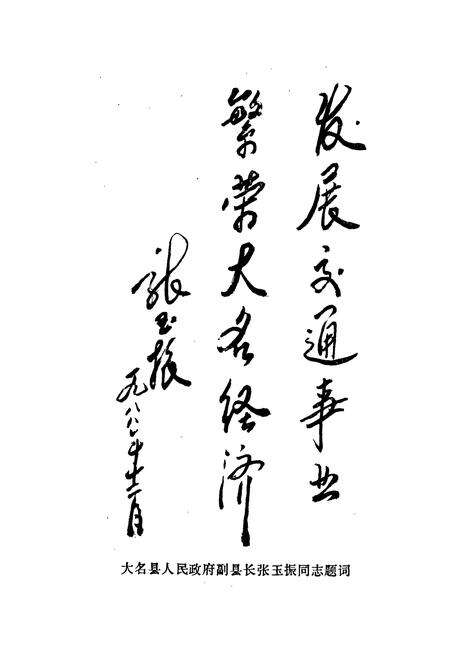 发展交通事业
繁荣大名经济
张玉振
一九八八年十二月
大名县人民政府副县长张玉振同志题词